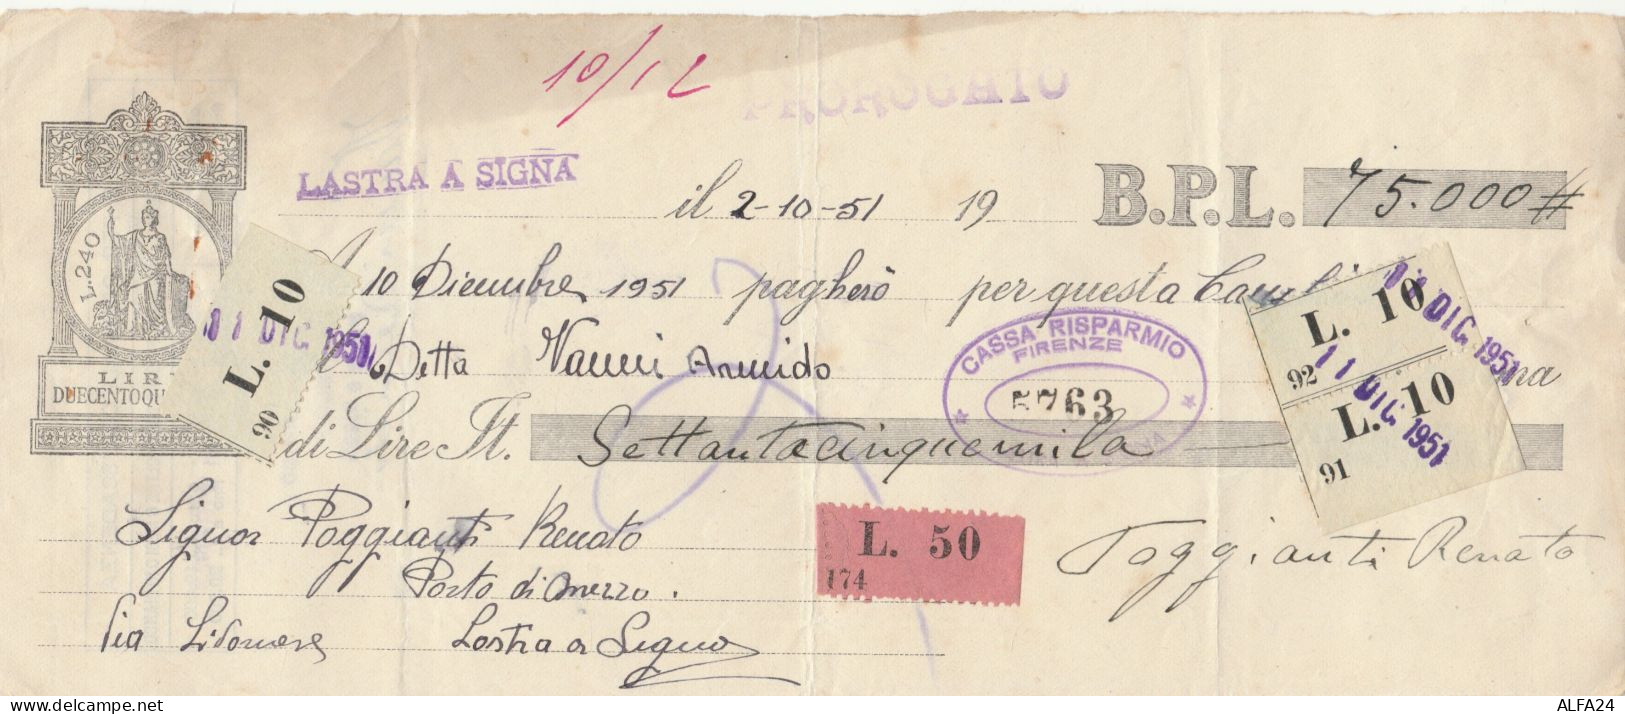 10/12
LASTRA A SIGNA
il 2-10-51 19 B.P.L. 75.000 #
L.240
A 10 Dicembre 1951 pagherò per questa
L. 10
90
11 DIC. 1951
L. 10
92
11 DIC. 1951
L. 10
91
11 DIC. 1951
LIR
DUECENTOQU
Ditta Nanni Armido
CASSA RISPARMIO
FIRENZE
5763
di Lire It. Settantacinquemila
Signor Poggianti Renato
Porto di mezzo.
Via Livornese Lastra a Signa
L. 50
174
Poggianti Renato
ALFA24